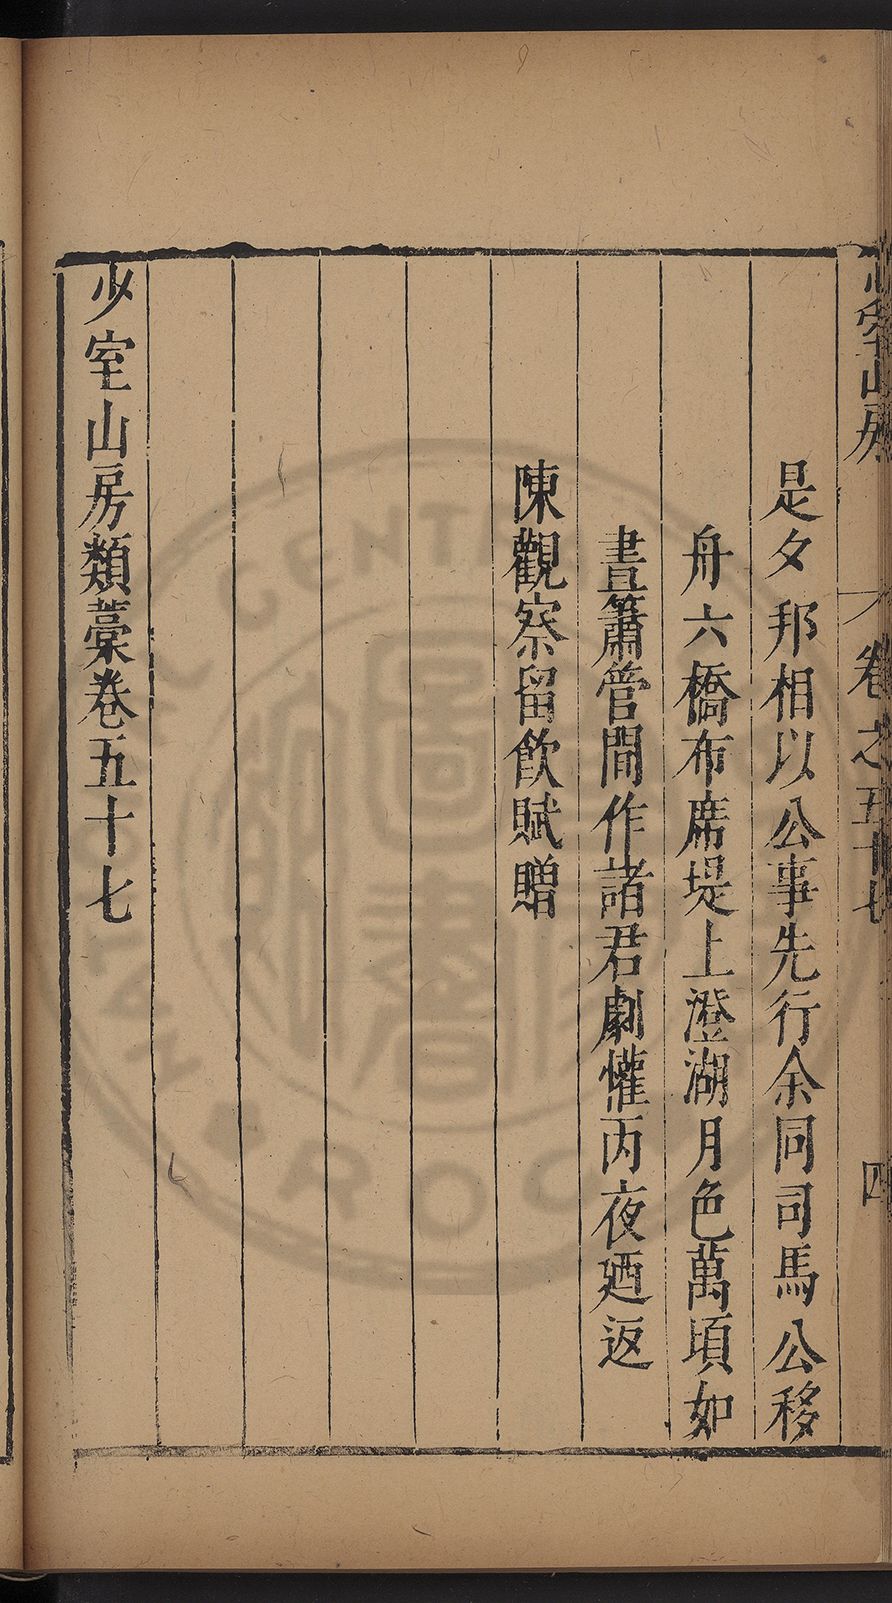 少室山房 卷之五十七 四
是夕邦相以公事先行余同司馬公移
舟六橋布席堤上澄湖月色萬頃如
晝簫管間作諸君劇懽丙夜廼返
陳觀察留飲賦贈
少室山房類藳卷五十七